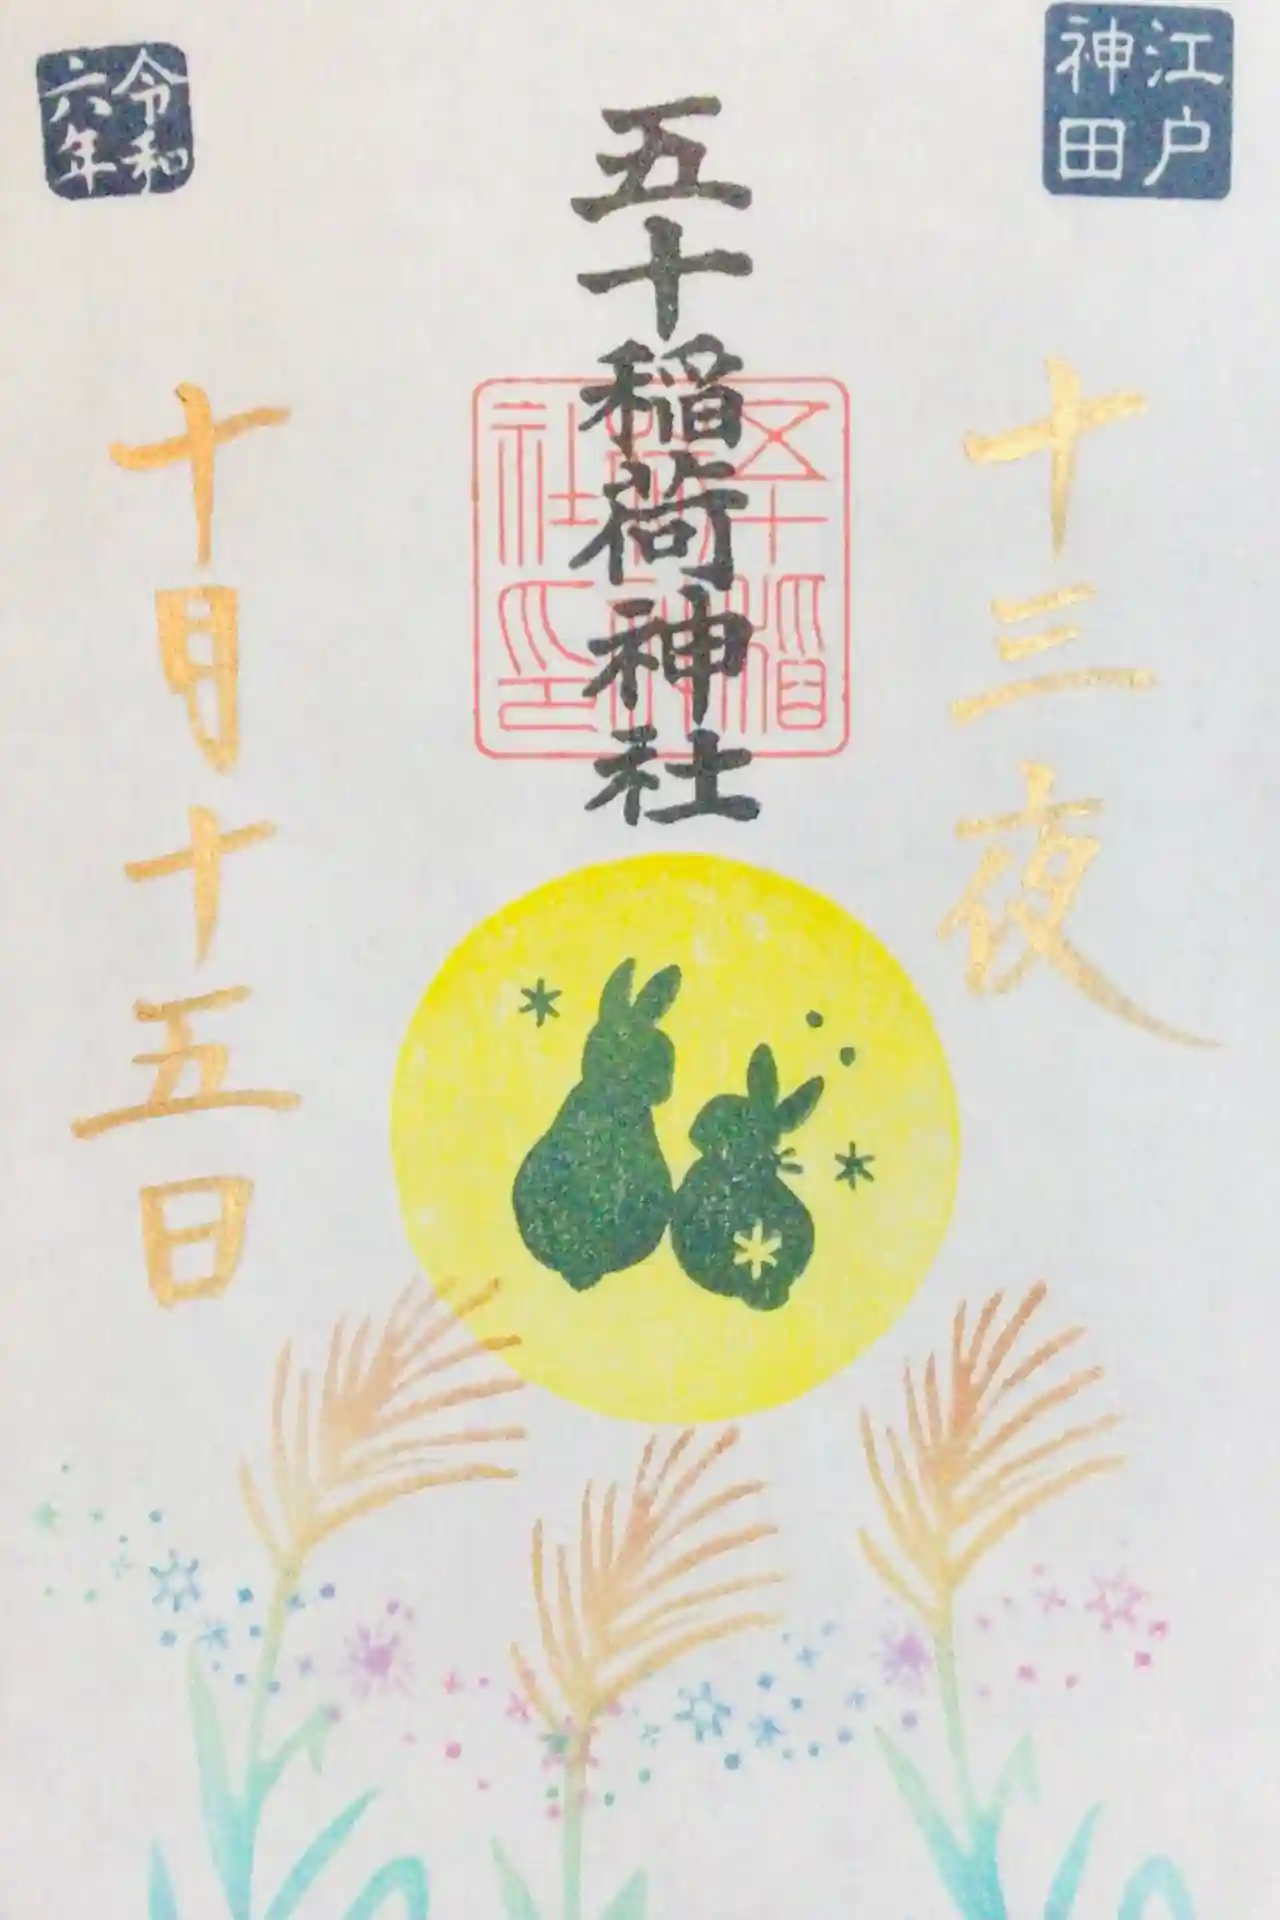 江戸
神田
十三夜
五十稲荷神社
五十稲
荷神
社印
令和
六年
十月十五日